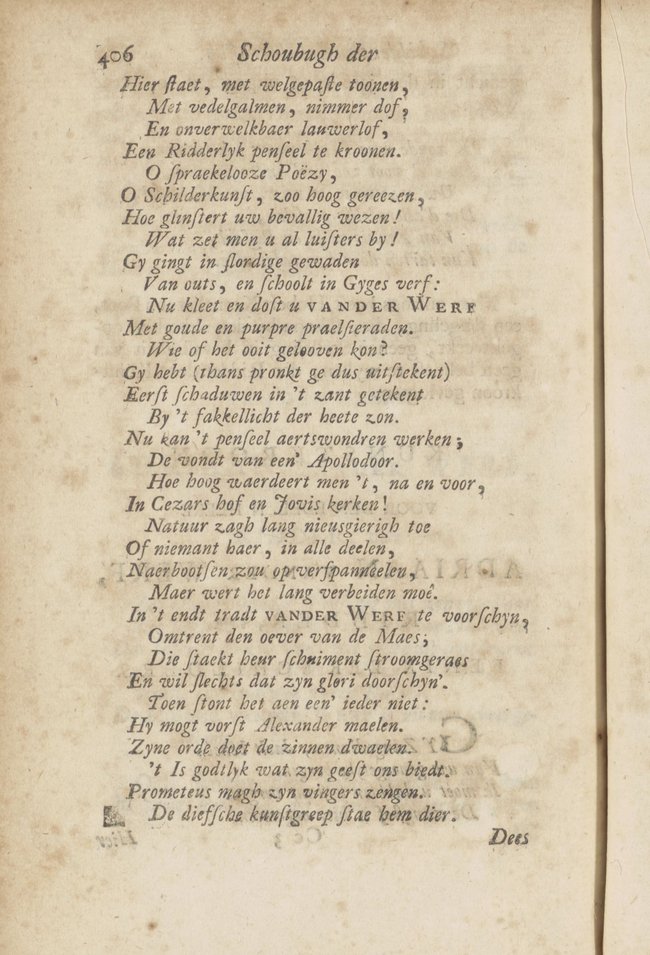 406 Schoubugh der
Hier ſtaet, met welgepaſte toonen,
Met vedelgalmen, nimmer dof,
En onverwelkbaer lauwerlof,
Een Ridderlyk penſeel te kroonen.
O ſpraekelooze Poëzy,
O Schilderkunſt, zoo hoog gereezen,
Hoe glinſtert uw bevallig wezen!
Wat zet men u al luiſters by!
Gy gingt in ſlordige gewaden
Van outs, en ſchoolt in Gyges verf:
Nu kleet en doſt u VANDER WERF
Met goude en purpre praelſieraden.
Wie of het ooit gelooven kon?
Gy hebt (thans pronkt ge dus uitſtekent)
Eerſt ſchaduwen in 't zant getekent
By 't fakkellicht der heete zon.
Nu kan 't penſeel aertswondren werken;
De vondt van een' Apollodoor.
Hoe hoog waerdeert men 't, na en voor,
In Cezars hof en Jovis kerken!
Natuur zagh lang nieusgierigh toe
Of niemant haer, in alle deelen,
Naerbootſen zou op verfpanneelen,
Maer wert het lang verbeiden moê.
In 't endt tradt VANDER WERF te voorſchyn,
Omtrent den oever van de Maes;
Die ſtaekt heur ſchuiment ſtroomgeraes
En wil ſlechts dat zyn glori doorſchyn'.
Toen ſtont het aen een' ieder niet:
Hy mogt vorſt Alexander maelen.
Zyne orde doet de zinnen dwaelen.
't Is godtlyk wat zyn geeſt ons biedt.
Prometeus magh zyn vingers zengen.
De diefſche kunſtgreep ſtae hem dier.
Dees